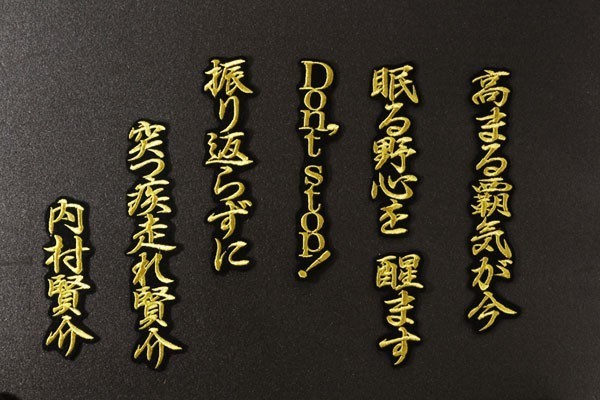 高まる覇気が今
眠る野心を 醒ます
Don't stop!
振り返らずに
突っ疾走れ賢介
内村賢介